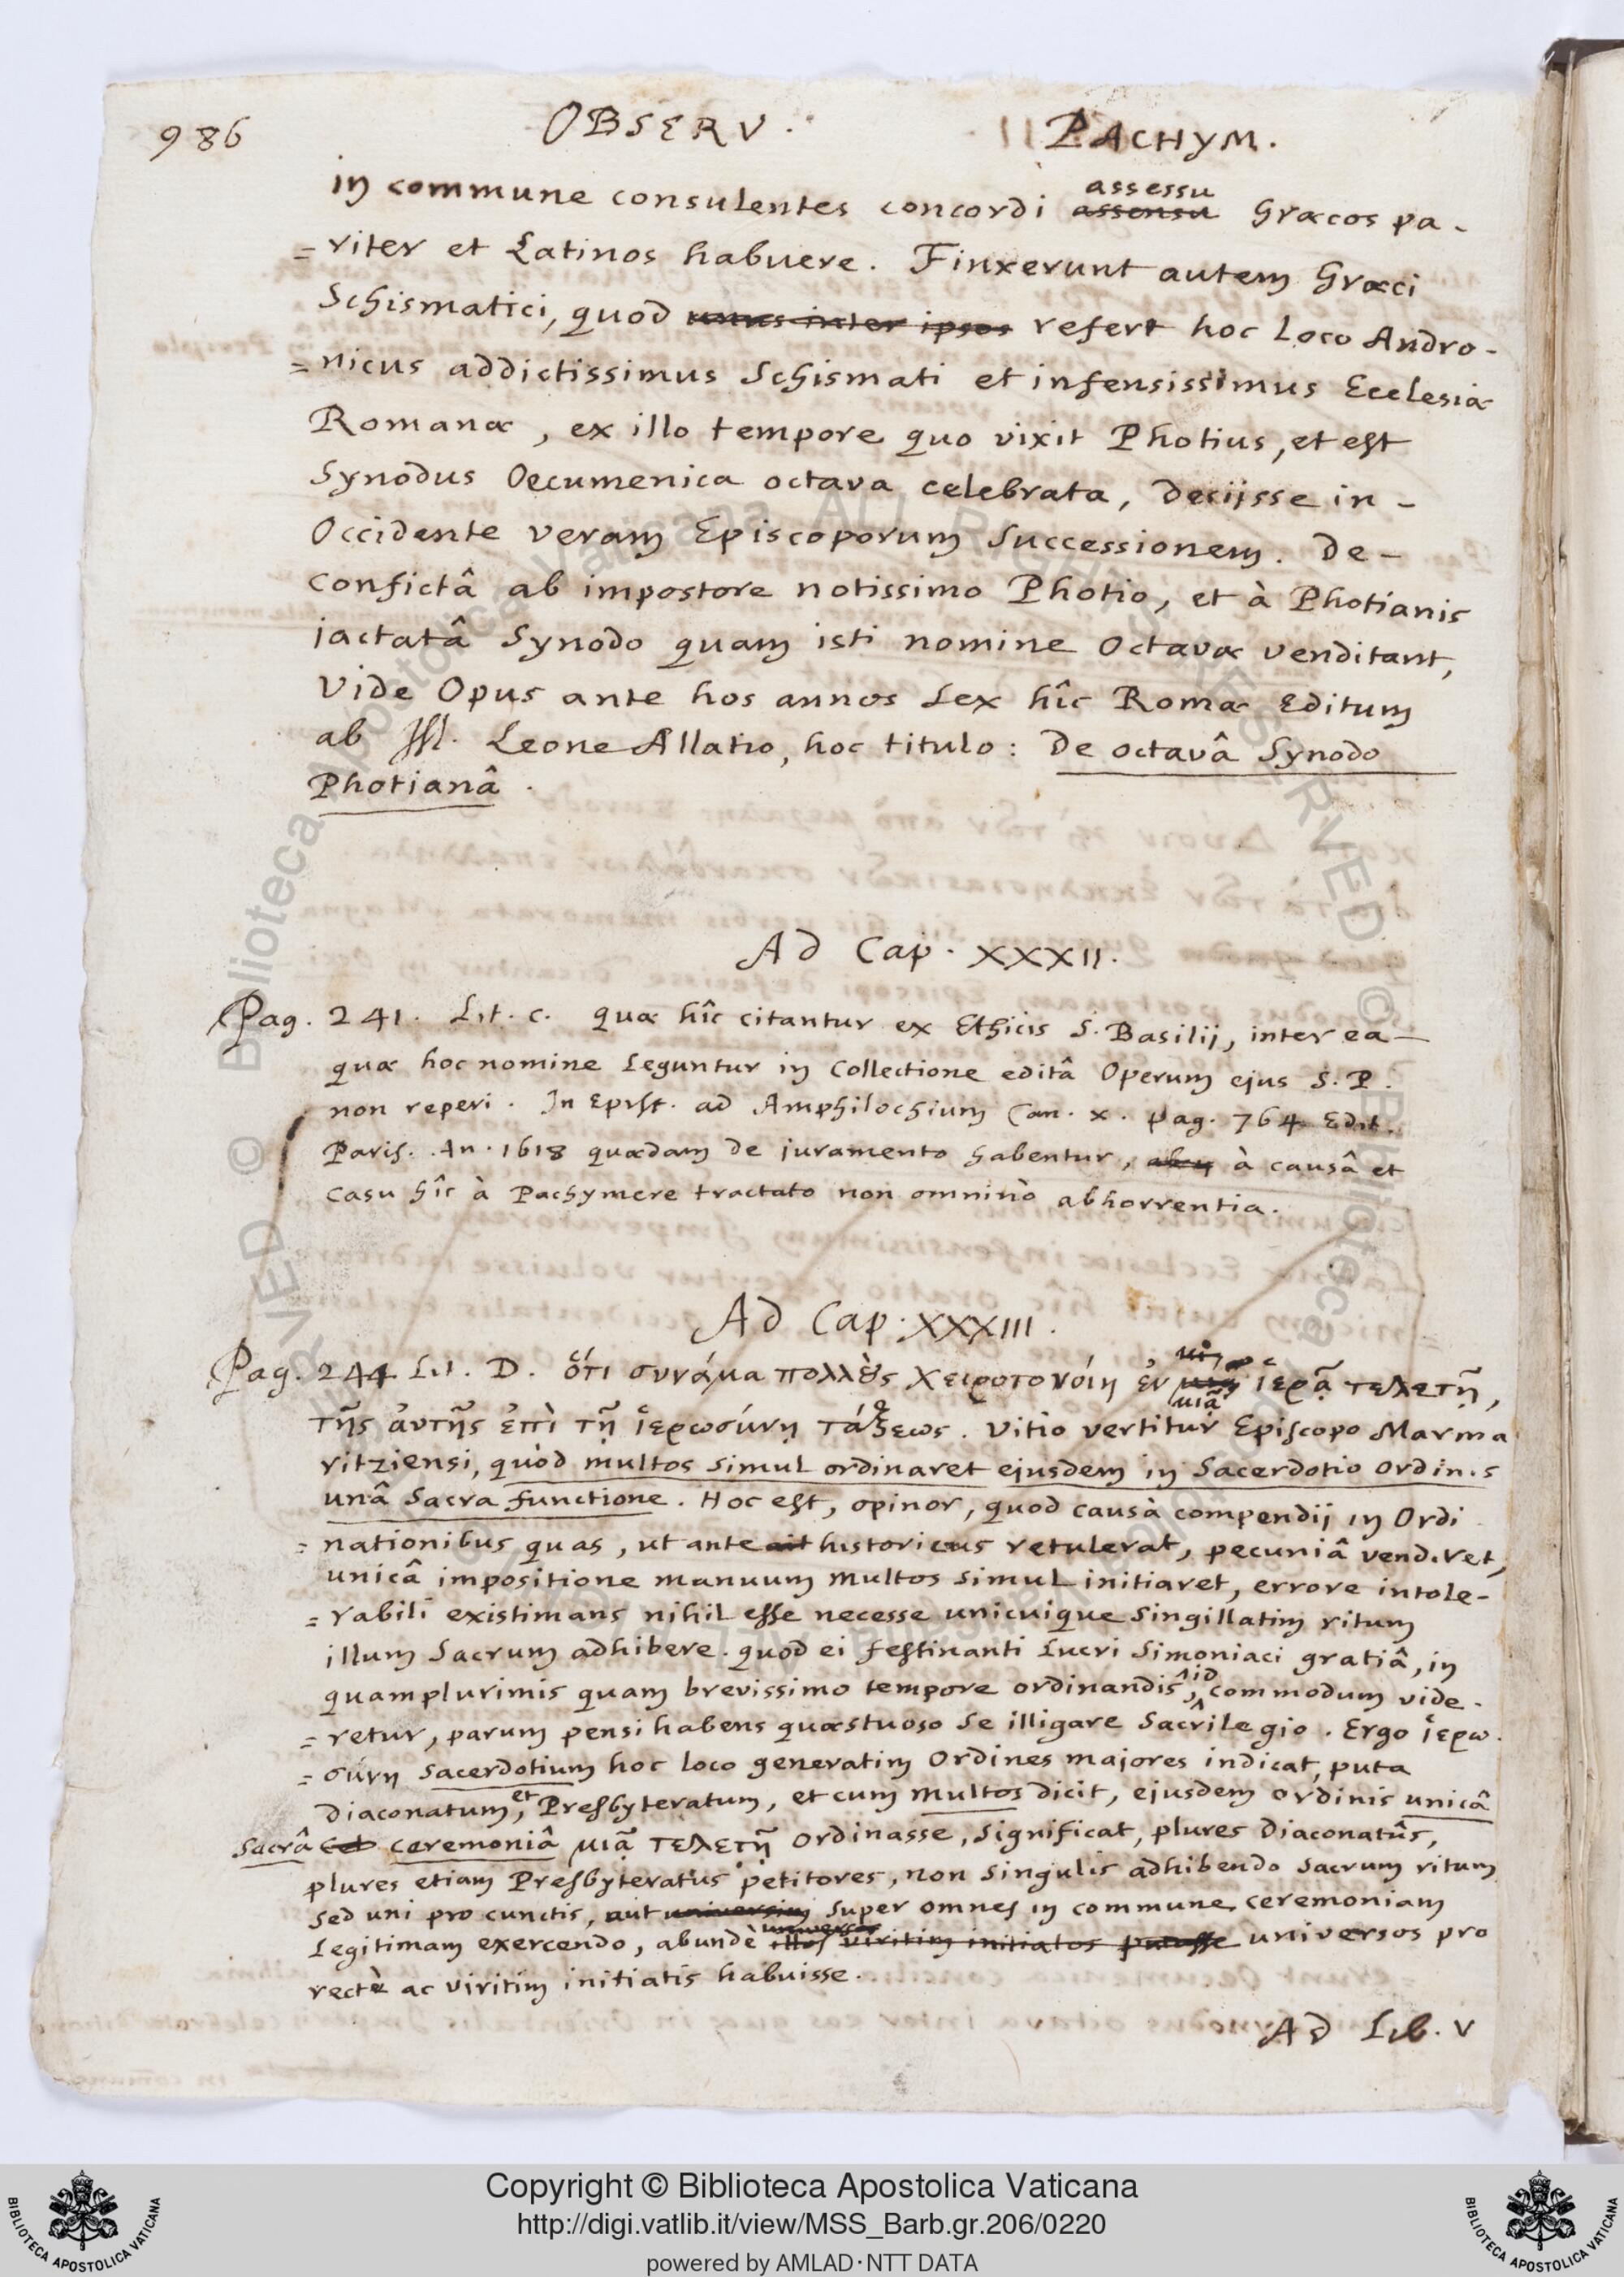 986 OBSERV. PACHYM.
in commune consulentes concordi assensu assessu Græcos pa-
=riter et Latinos habuere. Finxerunt autem Græci
Schismatici, quod unus inter ipsos refert hoc loco Andro-
=nicus addictissimus Schismati et infensissimus Ecclesiæ
Romanæ, ex illo tempore quo vixit Photius, et est
Synodus Oecumenica octava celebrata, desijsse in-
Occidente veram Episcoporum Successionem. De-
confictâ ab impostore notissimo Photio, et à Photianis
iactatâ Synodo quam isti nomine Octavæ venditant,
Vide Opus ante hos annos sex hîc Romæ Editum
ab Leone Allatio, hoc titulo: De octavâ Synodo
Photianâ.
Ad Cap. XXXII.
Pag. 241. Lit. C. quæ hîc citantur ex Ethicis S. Basilij, inter ea-
quæ hoc nomine leguntur in Collectione editâ Operum ejus S. P.
non reperi. In Epist. ad Amphilochium Can. X. pag. 764 Edit.
Paris. An. 1618 quædam de juramento habentur, à causâ et
casu hîc à Pachymere tractato non omninò abhorrentia.
Ad Cap. XXXIII.
Pag. 244 Lit. D. ὅτι συνάμα πολλοὺς χειροτονοίη ἐν μιᾷ ἱερᾷ τελετῇ,
τῆς ἀυτῆς ἐπὶ τῇ ἱερωσύνῃ τάξεως. Vitio vertitur Episcopo Marma
ritziensi, quòd multos simul ordinaret ejusdem in Sacerdotio Ordinis
unâ Sacra functione. Hoc est, opinor, quod causà compendij in Ordi
=nationibus quas, ut ante ait historicus retulerat, pecuniâ venderet,
unicâ impositione manuum multos simul initiaret, errore intole-
=rabili existimans nihil esse necesse unicuique singillatim ritum
illum Sacrum adhibere. quod ei festinanti lucri Simoniaci gratiâ, in
quamplurimis quam brevissimo tempore ordinandis, id commodum vide-
=retur, parum pensi habens quæstuoso se illigare Sacrilegio. Ergo ἱερω-
=σύνη sacerdotium hoc loco generatim Ordines majores indicat, puta
diaconatum, et Presbyteratum, et cum multos dicit, ejusdem ordinis unicâ
sacrâ ceremoniâ μιᾷ τελετῇ ordinasse, significat, plures Diaconatûs,
plures etiam Presbyteratûs petitores, non singulis adhibendo sacrum ritum
sed uni pro cunctis, aut universim super omnes in commune ceremoniam
legitimam exercendo, abundè illos universos viritim initiatos putasse universos pro
rectè ac viritim initiatis habuisse.
Ad Lib. V
Copyright © Biblioteca Apostolica Vaticana
http://digi.vatlib.it/view/MSS_Barb.gr.206/0220
powered by AMLAD·NTT DATA
BIBLIOTECA APOSTOLICA VATICANA
BIBLIOTECA APOSTOLICA VATICANA